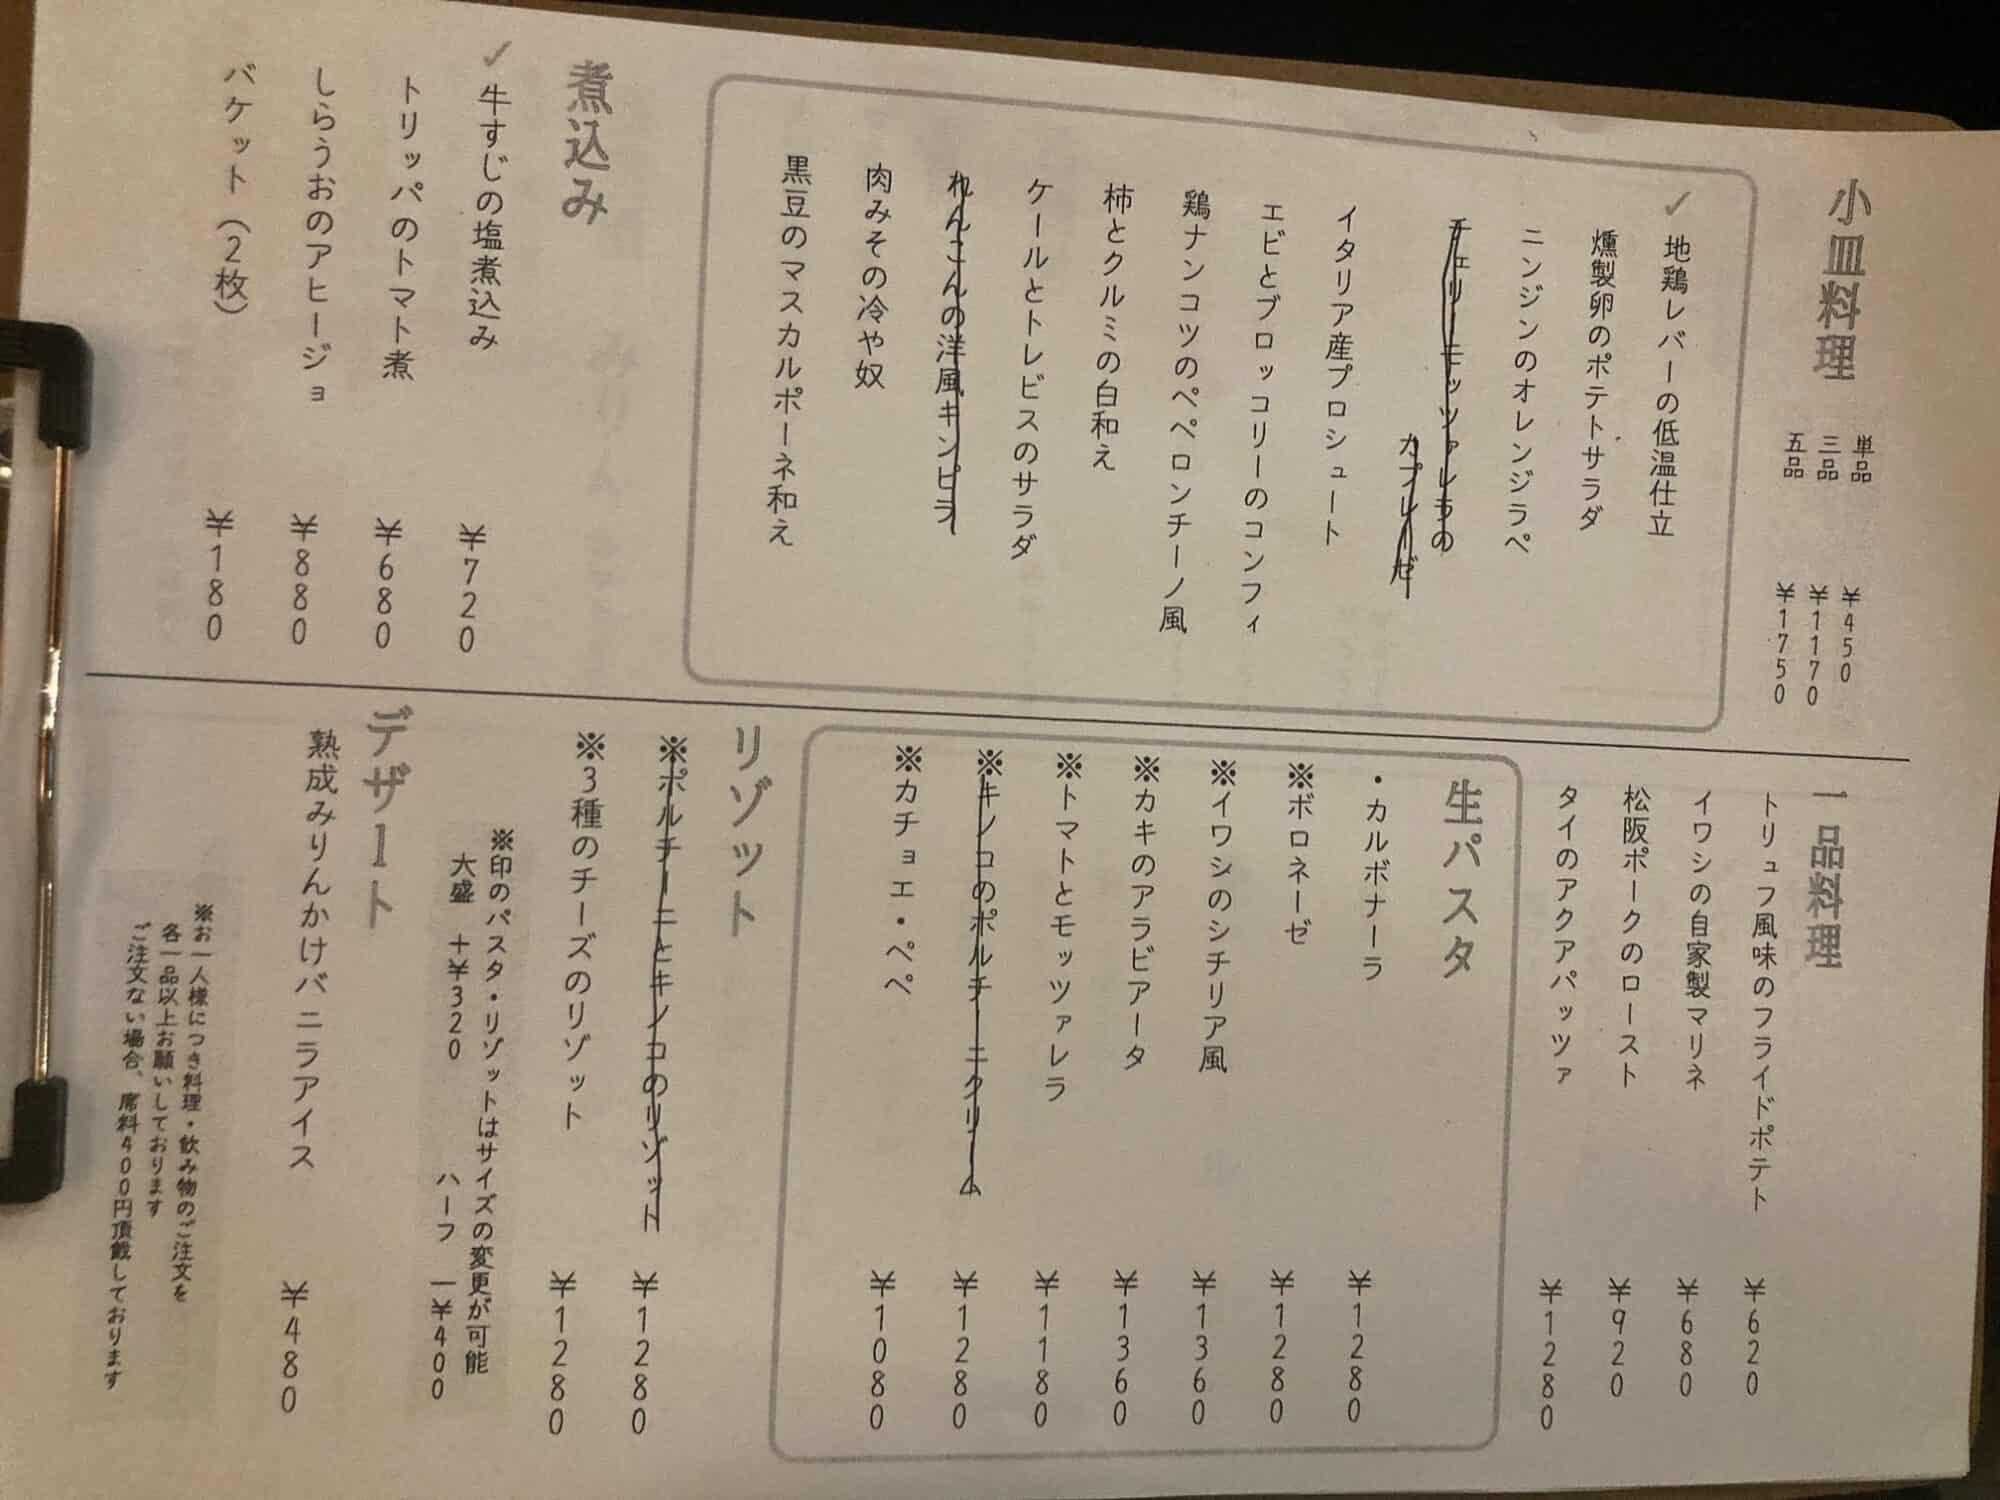 小皿料理
単品 ¥450
三品 ¥1170
五品 ¥1750
✓地鶏レバーの低温仕立
燻製卵のポテトサラダ
ニンジンのオレンジラペ
チェリーモッツァレラの
カプレーゼ
イタリア産プロシュート
エビとブロッコリーのコンフィ
鶏ナンコツのペペロンチーノ風
柿とクルミの白和え
ケールとトレビスのサラダ
れんこんの洋風キンピラ
肉みその冷や奴
黒豆のマスカルポーネ和え
煮込み
✓牛すじの塩煮込み ¥720
トリッパのトマト煮 ¥680
しらうおのアヒージョ ¥880
バケット(2枚) ¥180
一品料理
トリュフ風味のフライドポテト ¥620
イワシの自家製マリネ ¥680
松阪ポークのロースト ¥920
タイのアクアパッツァ ¥1280
生パスタ
・カルボナーラ ¥1280
※ボロネーゼ ¥1280
※イワシのシチリア風 ¥1360
※カキのアラビアータ ¥1360
※トマトとモッツァレラ ¥1180
※キノコのポルチーニクリーム ¥1280
※カチョエ・ペペ ¥1080
リゾット
※ポルチーニとキノコのリゾット ¥1280
※3種のチーズのリゾット ¥1280
※印のパスタ・リゾットはサイズの変更が可能
大盛 +¥320 ハーフ -¥400
デザート
熟成みりんかけバニラアイス ¥480
※お一人様につき料理・飲み物のご注文を
各一品以上お願いしております
ご注文ない場合、席料400円頂戴しております